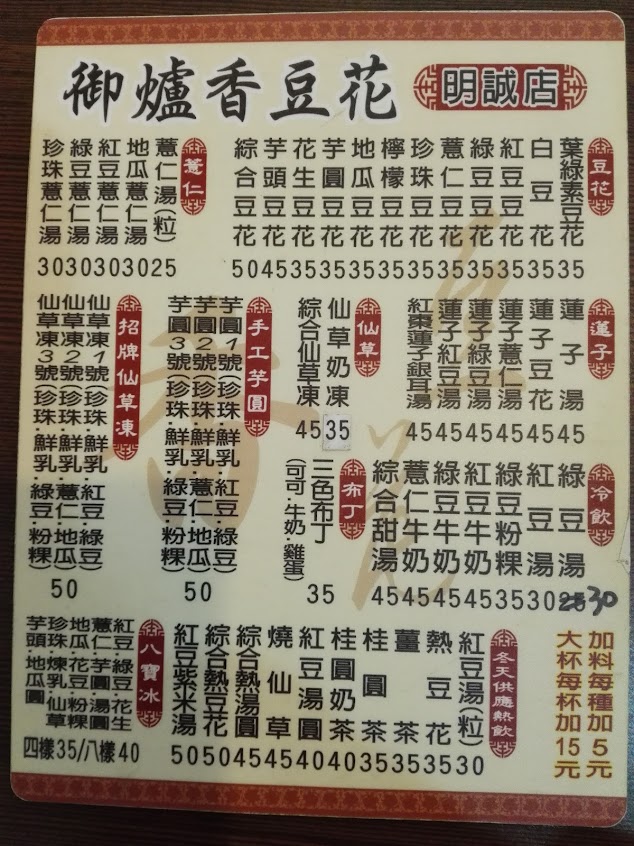 御爐香豆花
明誠店
豆花
葉綠素豆花 35
白豆花 35
紅豆豆花 35
綠豆豆花 35
薏仁豆花 35
珍珠豆花 35
檸檬豆花 35
地瓜豆花 35
芋圓豆花 35
花生豆花 35
芋頭豆花 45
綜合豆花 50
薏仁
薏仁湯(粒) 25
地瓜薏仁湯 30
紅豆薏仁湯 30
綠豆薏仁湯 30
珍珠薏仁湯 30
蓮子
蓮子湯 45
蓮子豆花 45
蓮子薏仁湯 45
蓮子綠豆湯 45
蓮子紅豆湯 45
紅棗蓮子銀耳湯 45
仙草
仙草奶凍 35
綜合仙草凍 45
手工芋圓
芋圓1號(珍珠.鮮乳.紅豆.綠豆)
芋圓2號(珍珠.鮮乳.薏仁.地瓜)
芋圓3號(珍珠.鮮乳.綠豆.粉粿)
50
招牌仙草凍
仙草凍1號(珍珠.鮮乳.紅豆.綠豆)
仙草凍2號(珍珠.鮮乳.薏仁.地瓜)
仙草凍3號(珍珠.鮮乳.綠豆.粉粿)
50
冷飲
綠豆湯 25 30
紅豆湯 30
綠豆粉粿 35
紅豆牛奶 45
綠豆牛奶 45
薏仁牛奶 45
綜合甜湯 45
布丁
三色布丁
(可可.牛奶.雞蛋)
35
加料每種加5元
大杯每杯加15元
冬天供應熱飲
紅豆湯(粒) 30
熱豆花 35
薑茶 35
桂圓茶 35
桂圓奶茶 40
紅豆湯圓 40
燒仙草 45
綜合熱湯圓 45
綜合熱豆花 50
紅豆紫米湯 50
八寶冰
紅豆.綠豆.花生
薏仁.芋圓.湯圓
地瓜.花豆.粉粿
珍珠.煉乳.仙草
芋頭.地瓜圓
四樣35/八樣40